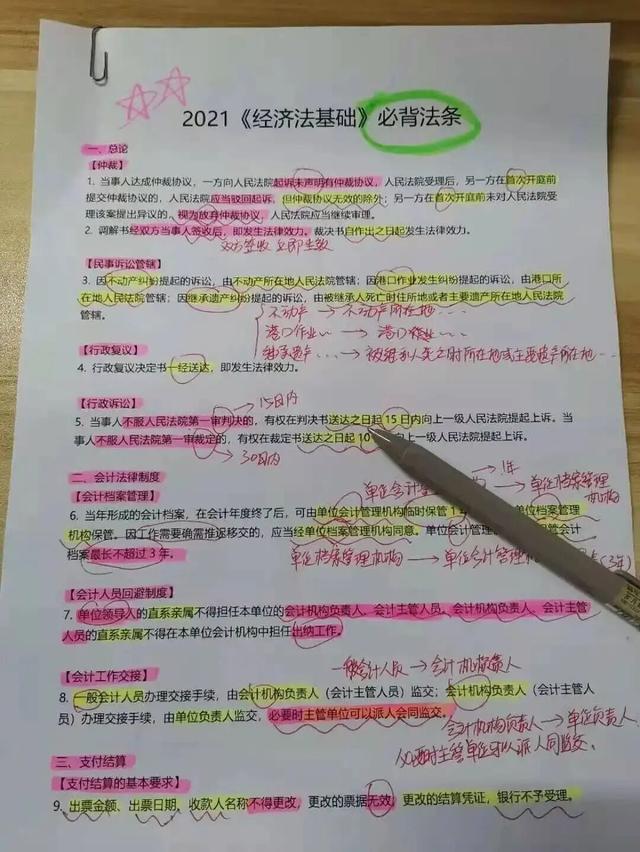 2021《经济法基础》必背法条
一、总论
【仲裁】
1. 当事人达成仲裁协议，一方向人民法院起诉未声明有仲裁协议，人民法院受理后，另一方在首次开庭前
提交仲裁协议的，人民法院应当驳回起诉，但仲裁协议无效的除外；另一方在首次开庭前未对人民法院受
理该案提出异议的，视为放弃仲裁协议，人民法院应当继续审理。
2. 调解书经双方当事人签收后，即发生法律效力。裁决书自作出之日起发生法律效力。
双方签收 立即生效
【民事诉讼管辖】
3. 因不动产纠纷提起的诉讼，由不动产所在地人民法院管辖；因港口作业发生纠纷提起的诉讼，由港口所
在地人民法院管辖；因继承遗产纠纷提起的诉讼，由被继承人死亡时住所地或者主要遗产所在地人民法院
管辖。
不动产 → 不动产所在地…
港口作业 … → 港口
继承遗产 … → 被继承人死亡时所在地或主要遗产所在地…
【行政复议】
4. 行政复议决定书一经送达，即发生法律效力。
【行政诉讼】
15日内
5. 当事人不服人民法院第一审判决的，有权在判决书送达之日起 15 日内向上一级人民法院提起上诉。当
事人不服人民法院第一审裁定的，有权在裁定书送达之日起 10 向上一级人民法院提起上诉。
日内
二、会计法律制度
1年
【会计档案管理】
单位会计 构 → 单位档案管理
机构
6. 当年形成的会计档案，在会计年度终了后，可由单位会计管理机构临时保管 1 单位档案管理
机构保管。因工作需要确需推迟移交的，应当经单位档案管理机构同意。单位会计管理 会计
档案最长不超过 3 年。
单位档案管理机构 → 单位会计管理机 (3年)
【会计人员回避制度】
7. 单位领导人的直系亲属不得担任本单位的会计机构负责人、会计主管人员。会计机构负责人、会计主管
人员的直系亲属不得在本单位会计机构中担任出纳工作。
【会计工作交接】
一般会计人员 → 会计机构负责人
8. 一般会计人员办理交接手续，由会计机构负责人（会计主管人员）监交；会计机构负责人（会计主管人
员）办理交接手续，由单位负责人监交，必要时主管单位可以派人会同监交。
会计机构负责人 → 单位负责人，
必要时主管单位可以派人会同监交。
三、支付结算
【支付结算的基本要求】
9. 出票金额、出票日期、收款人名称不得更改，更改的票据无效，更改的结算凭证，银行不予受理。